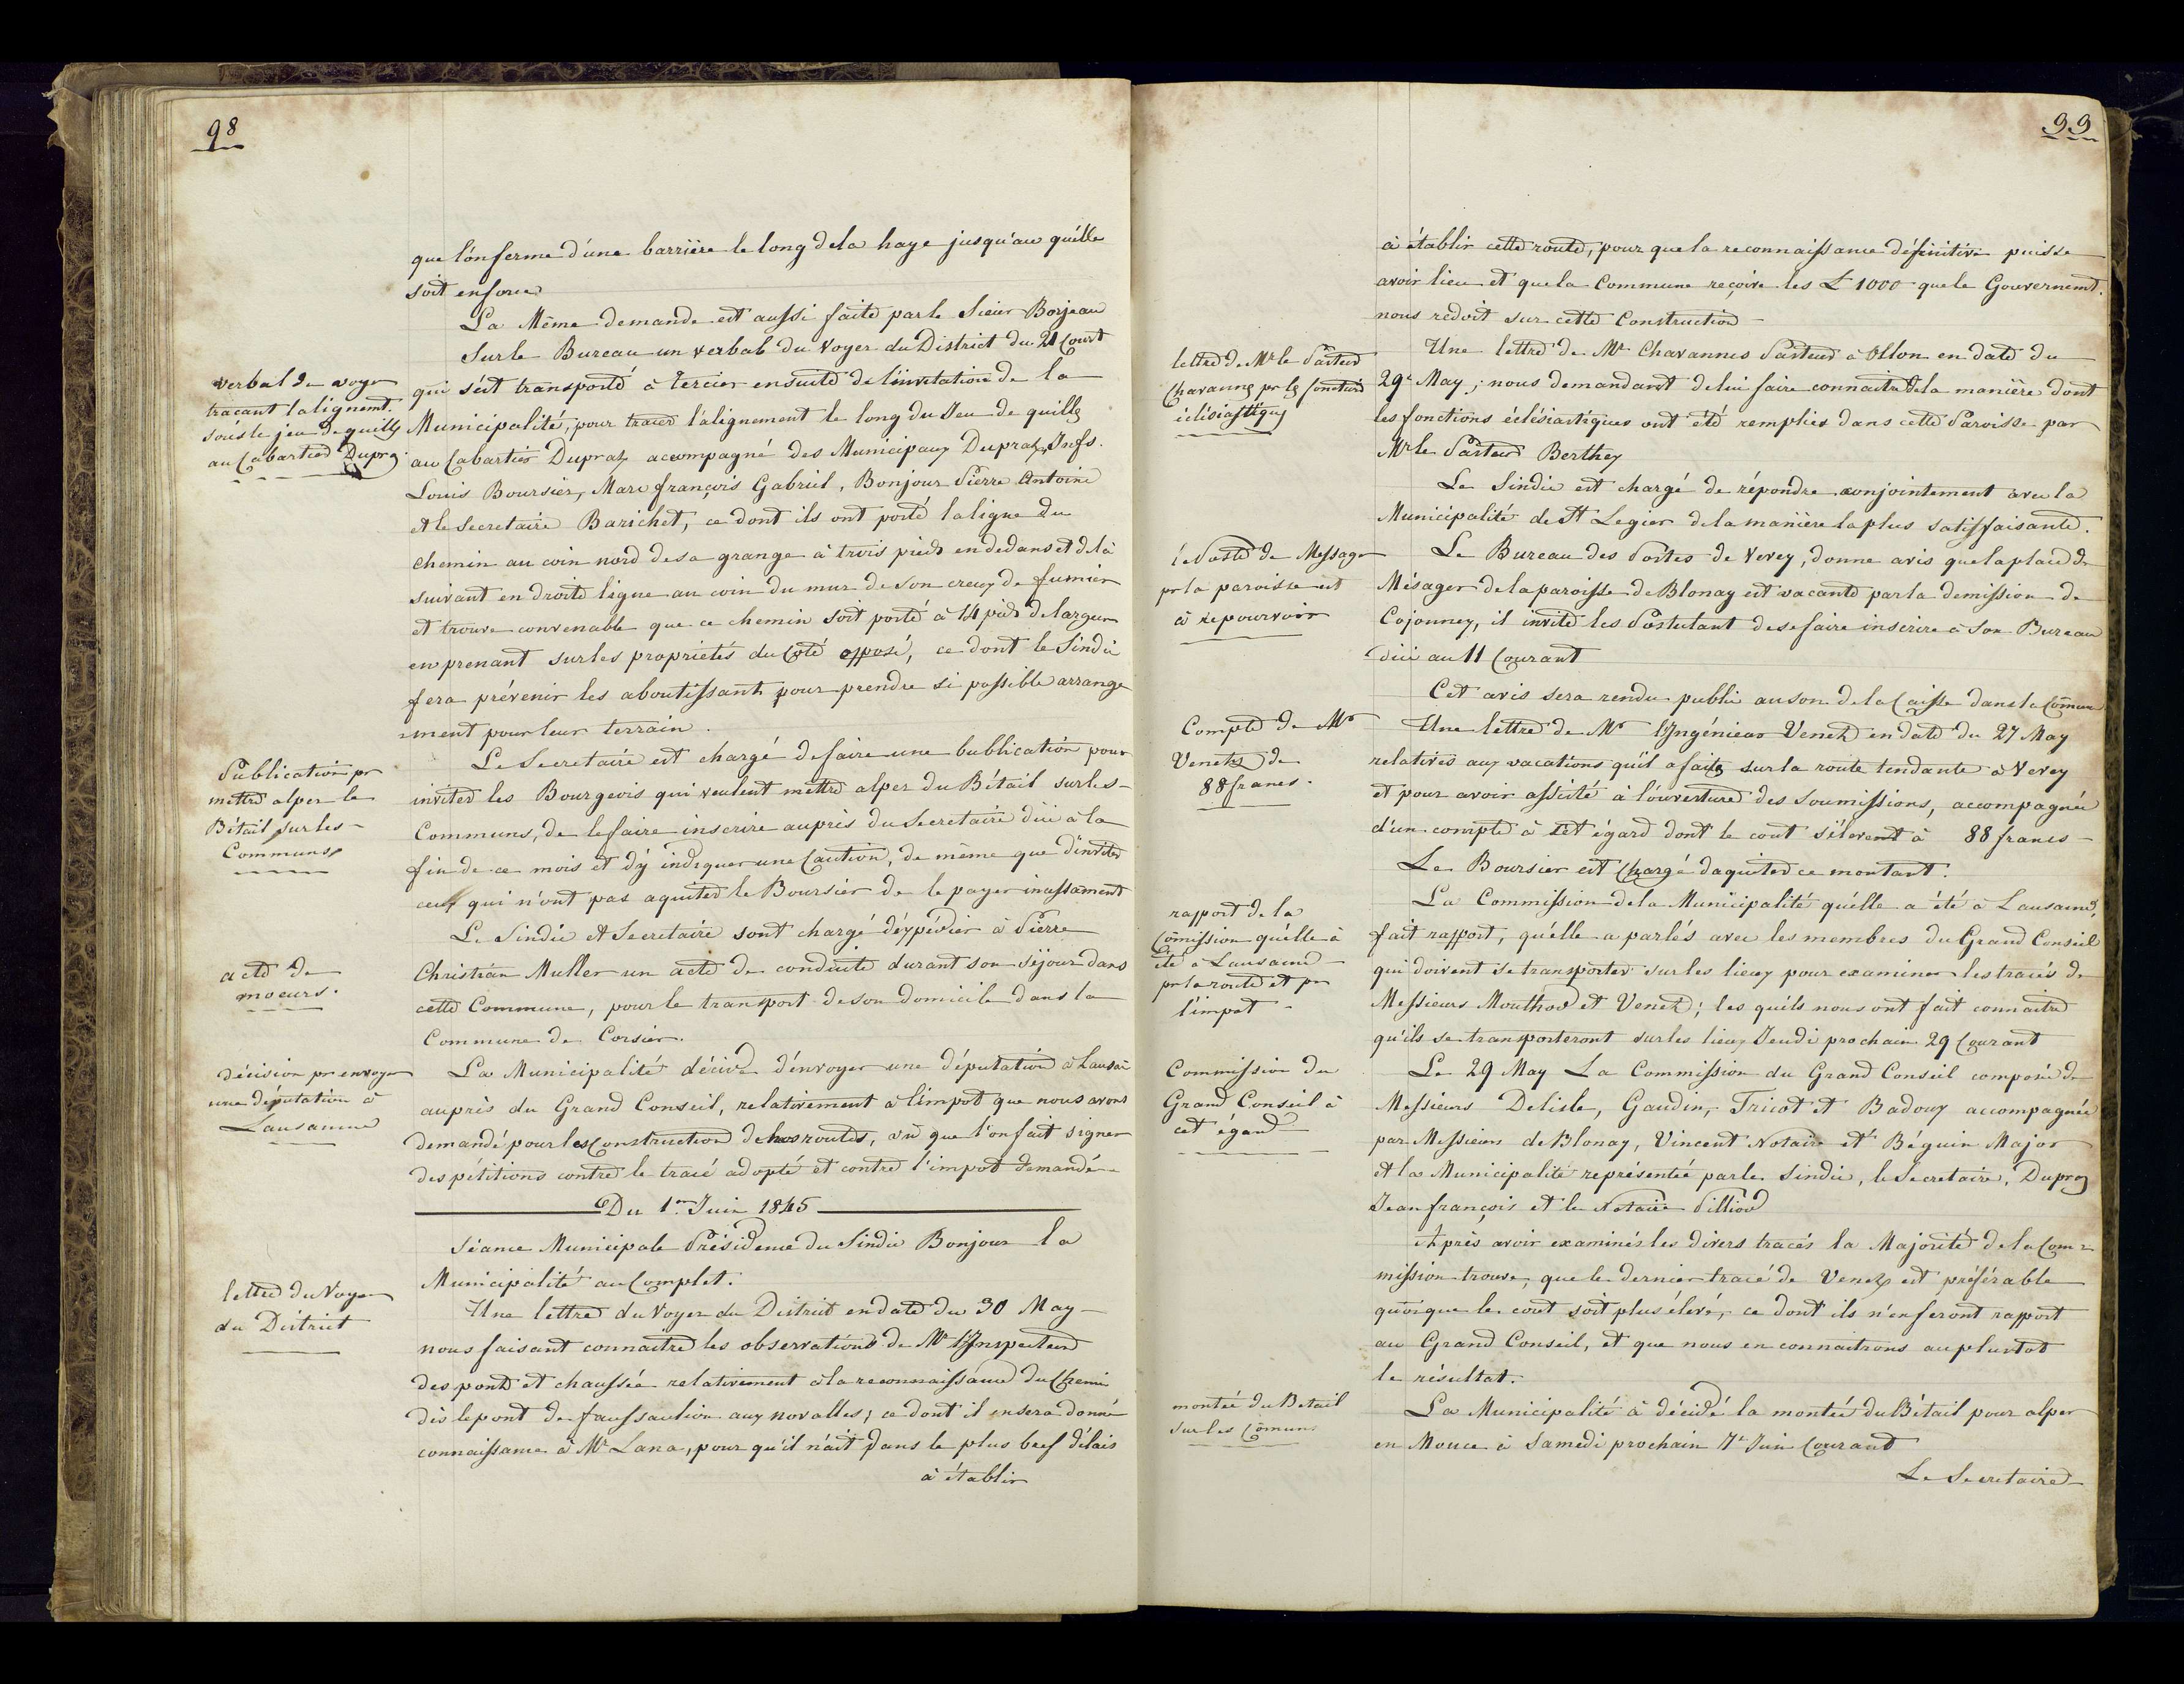 98
que l'on ferme d'une barrière le long de la haye jusqu'au qu'elle
soit en force
La Même demande est aussi faite par le Sieur Borjeau
verbal du voyer
traçant l'alignemt.
sous le jeu de quilles
au Cabartier Dupraz
Sur le Bureau un verbal du Voyer du District du 21 Court
qui s'est transporté à Tercier ensuite de l'invitation de la
Municipalité, pour tracer l'alignement le long du Jeu de quilles
au Cabartier Dupraz accompagné des Municipaux Dupraz Jn fs.
Louis Boursier, Marc françois Gabriel, Bonjour Pierre Antoine
et le Secretaire Barichet, ce dont ils ont porté la ligne du
chemin au coin nord de sa grange à trois pieds en dedans et de là
suivant en droite ligne au coin du mur de son creux de fumier
et trouve convenable que ce chemin soit porté à 14 pieds de largeur
en prenant sur les propriétés du Coté opposé, ce dont le Sindic
fera prévenir les aboutissants pour prendre si possible arrange
=ment pour leur terrain.
Publication pr
mettre alper le
Bétail sur les
Communs
Le Secretaire est chargé de faire une bublication pour
inviter les Bourgeois qui veulent mettre alper du Bétail sur les
Communs, de le faire inscrire auprès du Secretaire d'ici à la
fin de ce mois et d'y indiquer une Caution, de même que d'inviter
ceux qui n'ont pas aquiter le Boursier de le payer inassament
acte de
moeurs.
Le Sindic et Secretaire sont chargé d'expédier à Pierre
Christian Muller un acte de conduite durant son séjour dans
cette Commune, pour le transport de son domicile dans la
Commune de Corsier.
décision pr envoyer
une députation à
Lausanne
La Municipalité décide d'envoyer une députation à Lausâ
auprès du Grand Conseil, relativement à l'impot que nous avons
demandé pour les Construction de nos routes, vû que l'on fait signer
des pétitions contre le tracé adopté et contre l'impot demandé
Du 1er Juin 1845
Séance Municipale Présidence du Sindic Bonjour la
Municipalité au Complet.
lettre du Voyer
du District
Une lettre du Voyer du District en date du 30 May
nous faisant connaitre les observations de Mr l'Inspecteur
des ponts et chaussée relativement à la reconnaissance du Chemi
dès le pont de faussaulion aux novalles; ce dont il en sera donné
connaissance à Mr Lana, pour qu'il n'ait dans le plus bref délais
à établir
99
à établir cette route, pour que la reconnaissance définitive puisse
avoir lieu et que la Commune reçoive les L 1000 que le Gouvernemt.
nous redoit sur cette Construction
lettre de Mr le Pasteur
Chavannes pr les fonctions
éclésiastiques
Une lettre de Mr Chavannes Pasteur à Ollon en date du
29e May; nous demandant de lui faire connaitre de la manière dont
les fonctions éclésiastiques ont été remplies dans cette Paroisse par
Mr le Pasteur Berthey
Le Sindic est chargé de répondre conjointement avec la
Municipalité de St Legier de la manière la plus satisfaisante.
le Poste de Messager
pr la paroisse est
à repourvoir
Le Bureau des Postes de Vevey, donne avis que la place de
Mésager de la paroisse de Blonay est vacante par la demission de
Cojonney, il invite les Postulant de se faire inscrire à son Bureau
d'ici au 11 Courant
Cet avis sera rendu public au son de la Caisse dans la Cõmune
Compte de Mr
Venetz de
88 francs.
Une lettre de Mr l'Ingénieur Venetz en date du 27 May
relatives aux vacations qu'il a faites sur la route tendante à Vevey
et pour avoir assisté à l'ouverture des soumissions, accompagnée
d'un compte à cet égard dont le cout s'élevent à 88 francs
Le Boursier est Chargé d'aquiter ce montant.
rapport de la
Cõmission qu'elle à
été à Lausanne
pr la route et pr
l'impot
La Commission de la Municipalité qu'elle a été à Lausanne,
fait rapport, qu'elle a parlés avec les membres du Grand Conseil
qui doivent se transporter sur les lieux pour examiner les tracés de
Messieurs Mouthod et Venetz; les quels nous ont fait connaitre
qu'ils se transporteront sur les lieux Jeudi prochain 29 Courant
Commission du
Grand Conseil à
cet égard
Le 29 May La Commission du Grand Conseil composée de
Messieurs Delisle, Gaudin, Tricot et Badoux accompagnée
par Messieurs de Blonay, Vincent Notaire et Béguin Major
et la Municipalité représentée par le Sindic, le Secretaire, Dupraz
Jean françois et le Notaire Pilliod
Après avoir examinés les divers tracés la Majorité de la Com=
mission trouve, que le dernier tracé de Venetz est préférable
quoique le cout soit plus élevé, ce dont ils n'en feront rapport
au Grand Conseil, et que nous en connaitrons au plustot
le résultat.
montée du Betail
sur les Cõmuns
La Municipalité à décidé la montée du Bétail pour alper
en Mouce à Samedi prochain 7e Juin Courant
Le Secretaire